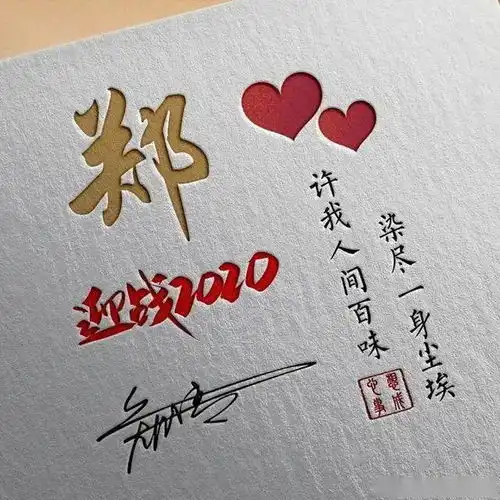 郑
迎战2020
许我人间百味
染尽一身尘埃
心想
事成